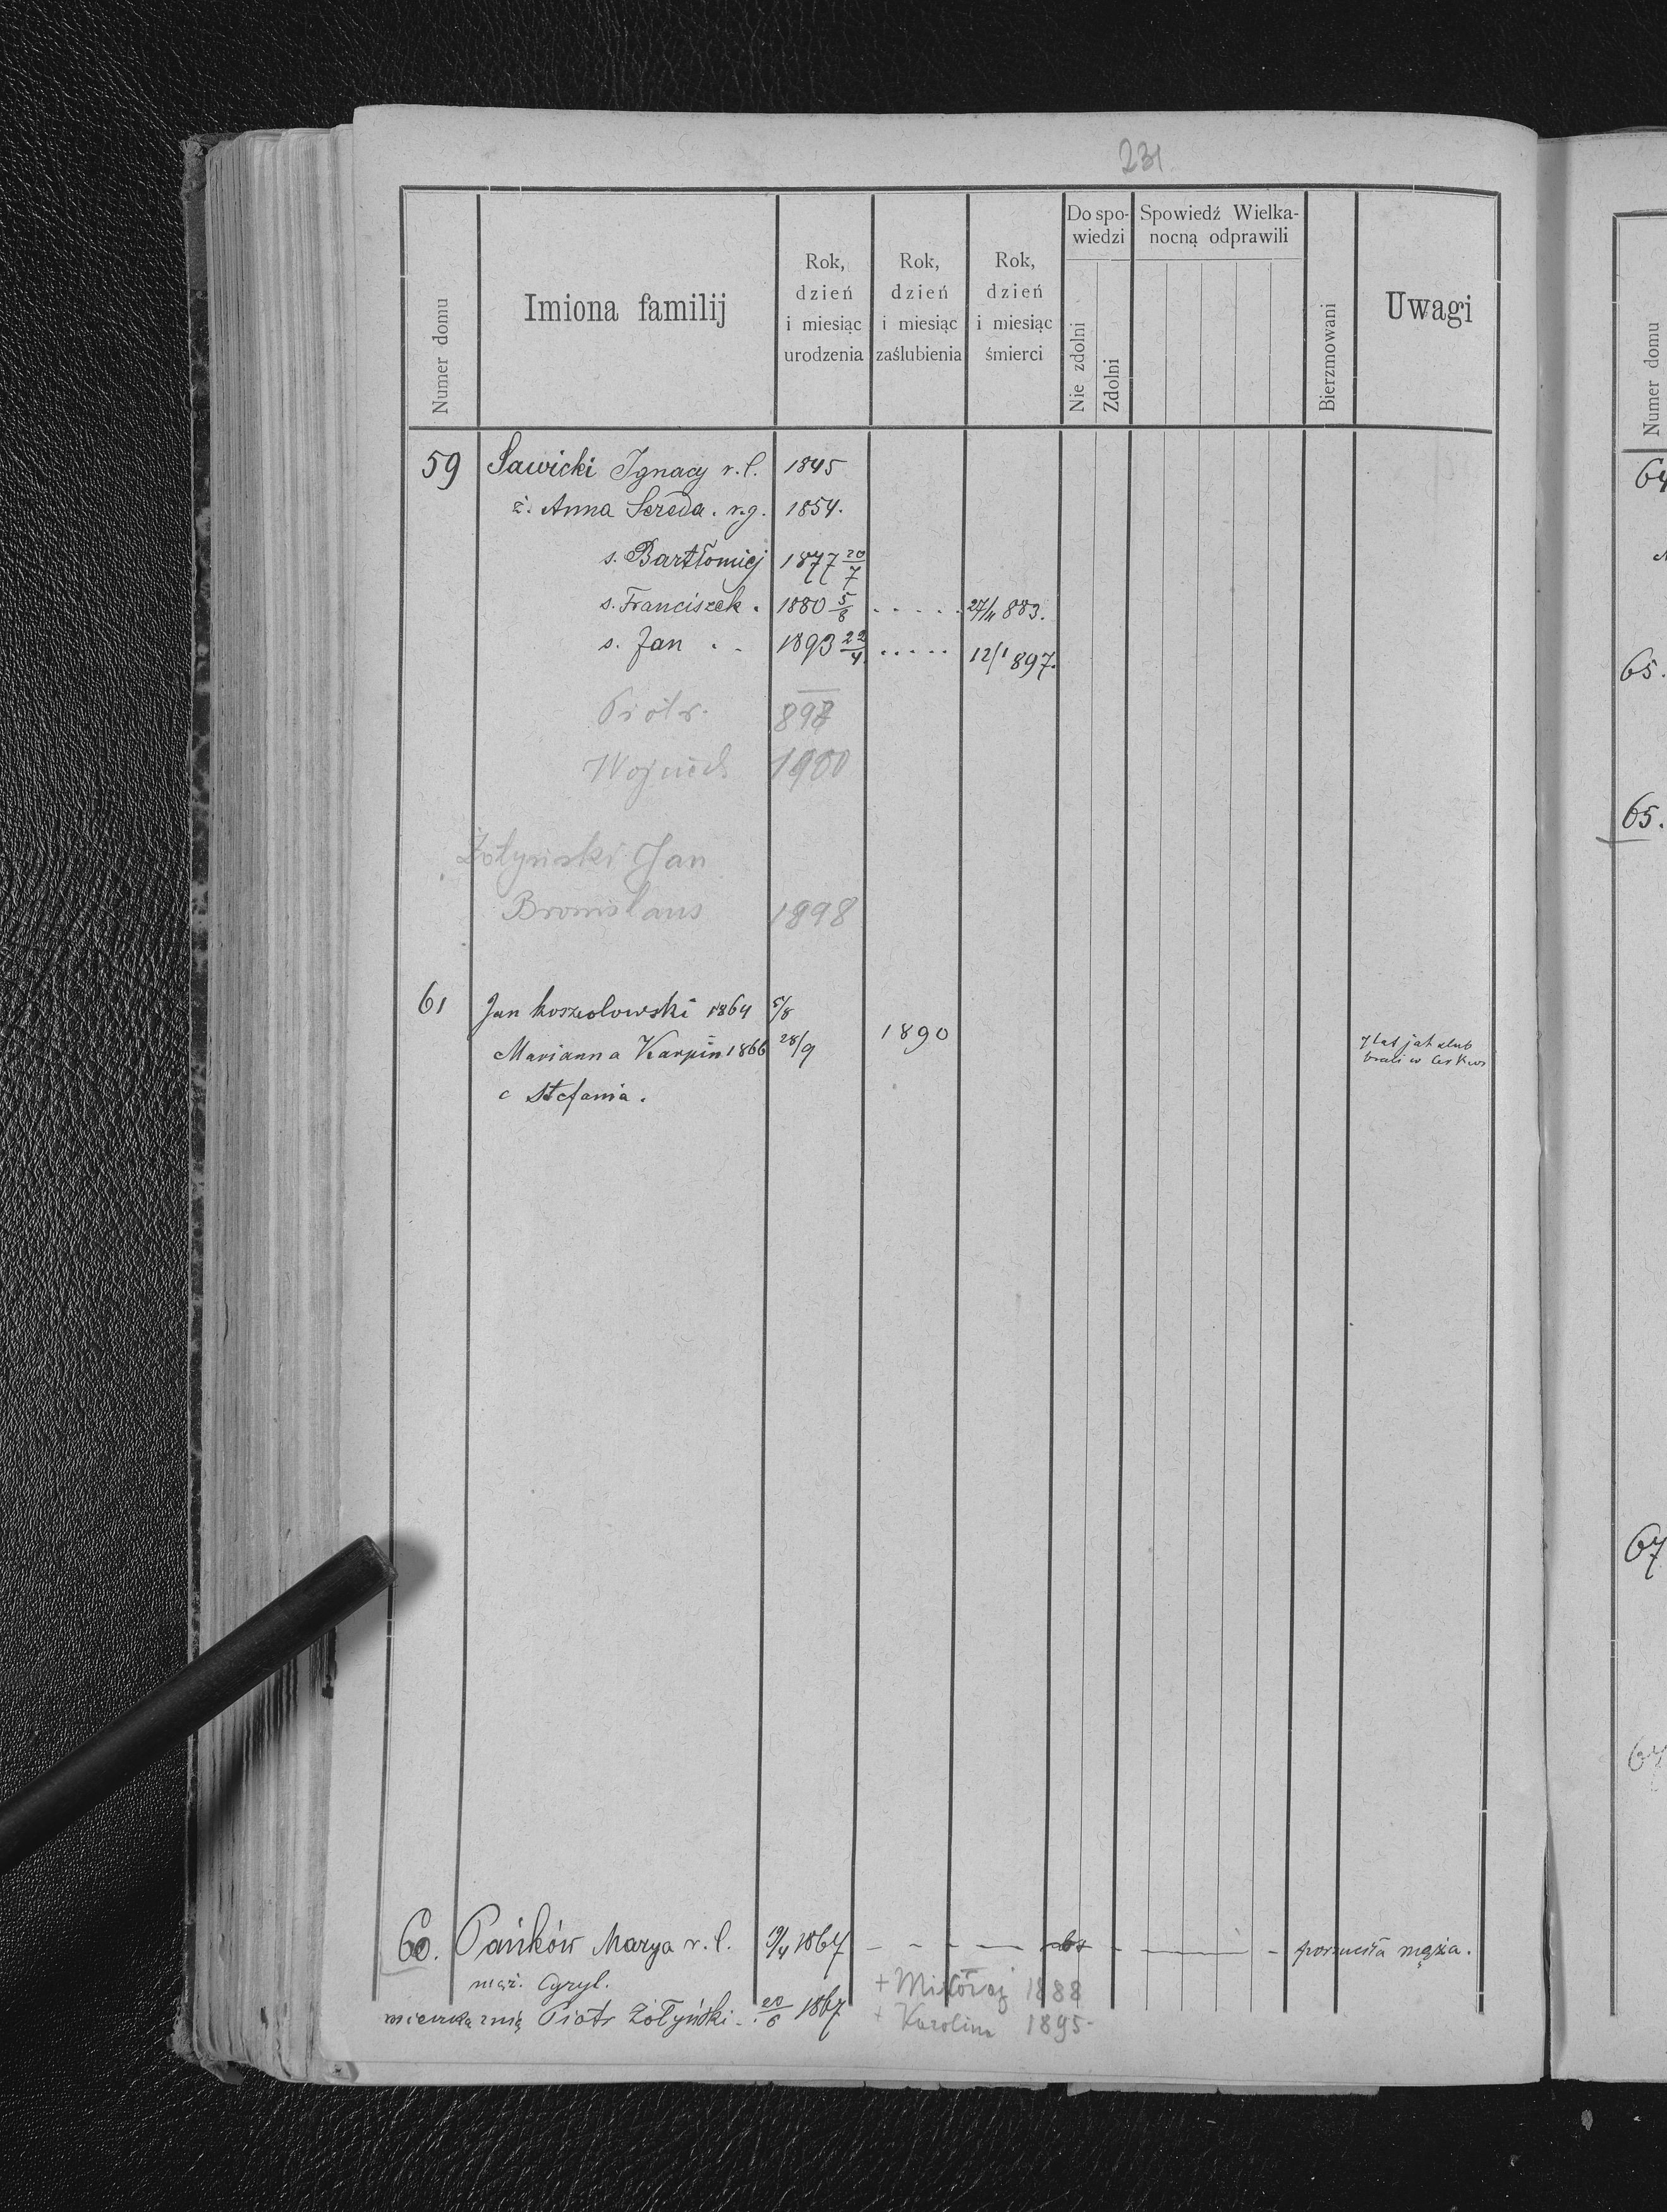 231
Numer domu
Imiona familij
Rok, dzień i miesiąc urodzenia
Rok, dzień i miesiąc zaślubienia
Rok, dzień i miesiąc śmierci
Do spowiedzi
Nie zdolni
Zdolni
Spowiedź Wielkanocną odprawili
Bierzmowani
Uwagi
59 Sawicki Ignacy r.l. 1845
ż. Anna Sereda. r.g. 1854.
s. Bartłomiej 1877 20/7
s. Franciszek. 1880 5/8 ..... 27/11 883.
s. Jan .. 1893 22/4 ..... 12/1 897.
Piotr. 897
Wojciech 1900
Żołyński Jan
Bronislaus 1898
61 Jan Koszolowski 1864 5/8
Marianna Karpin 1866 28/9 1890 7 lat jak slub
brali w cerkwi
c Stefania.
60. Pańków Marya r.l. 19/4 1864 porzuciła męża.
mąż. Cyryl. + Mikołaj 1888
mieszka z nią Piotr Żołyński. 20/6 1867 + Karolina 1895
Numer domu
64
65.
65.
67